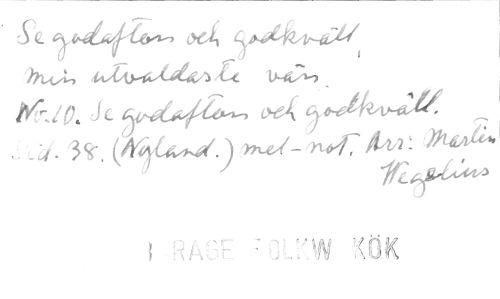 Se godafton och godkväll,
min utvaldaste vän
No.10. Se godafton och godkväll.
Sid. 38. (Nyland.) mel-not. Arr: Martin
Wegelius
RAGE FOLKW KÖK